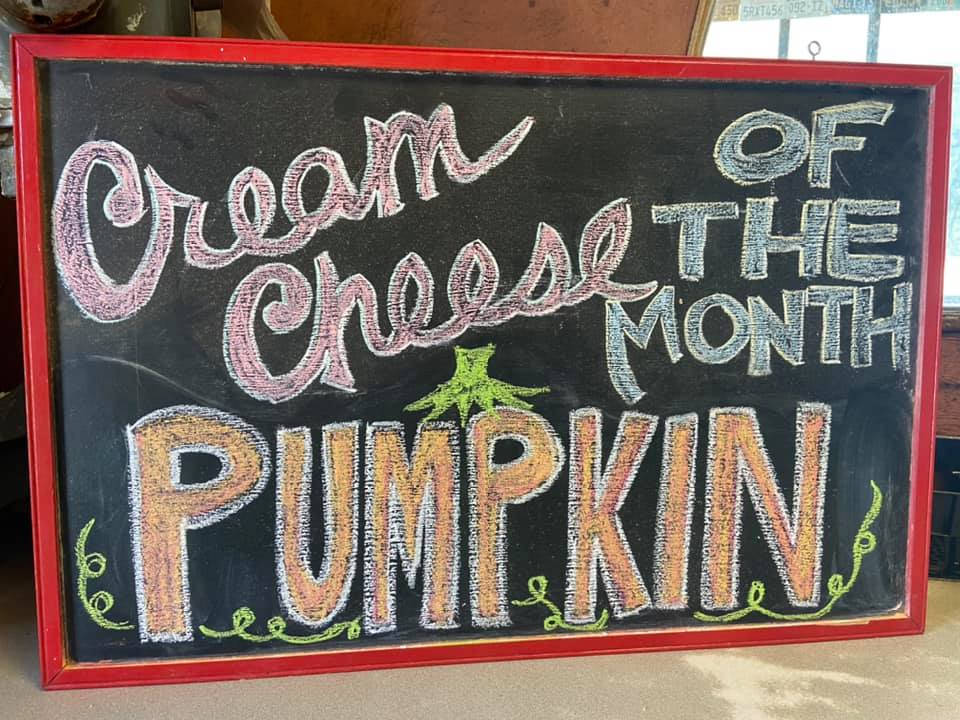 Cream
Cheese
OF
THE
MONTH
PUMPKIN